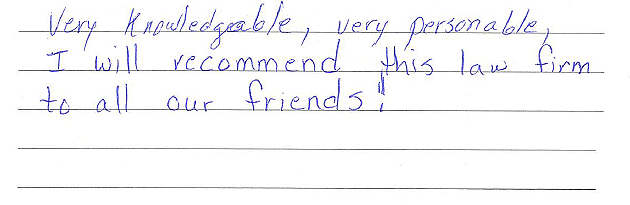 Very Knowledgeable, very personable,
I will recommend this law firm
to all our friends!